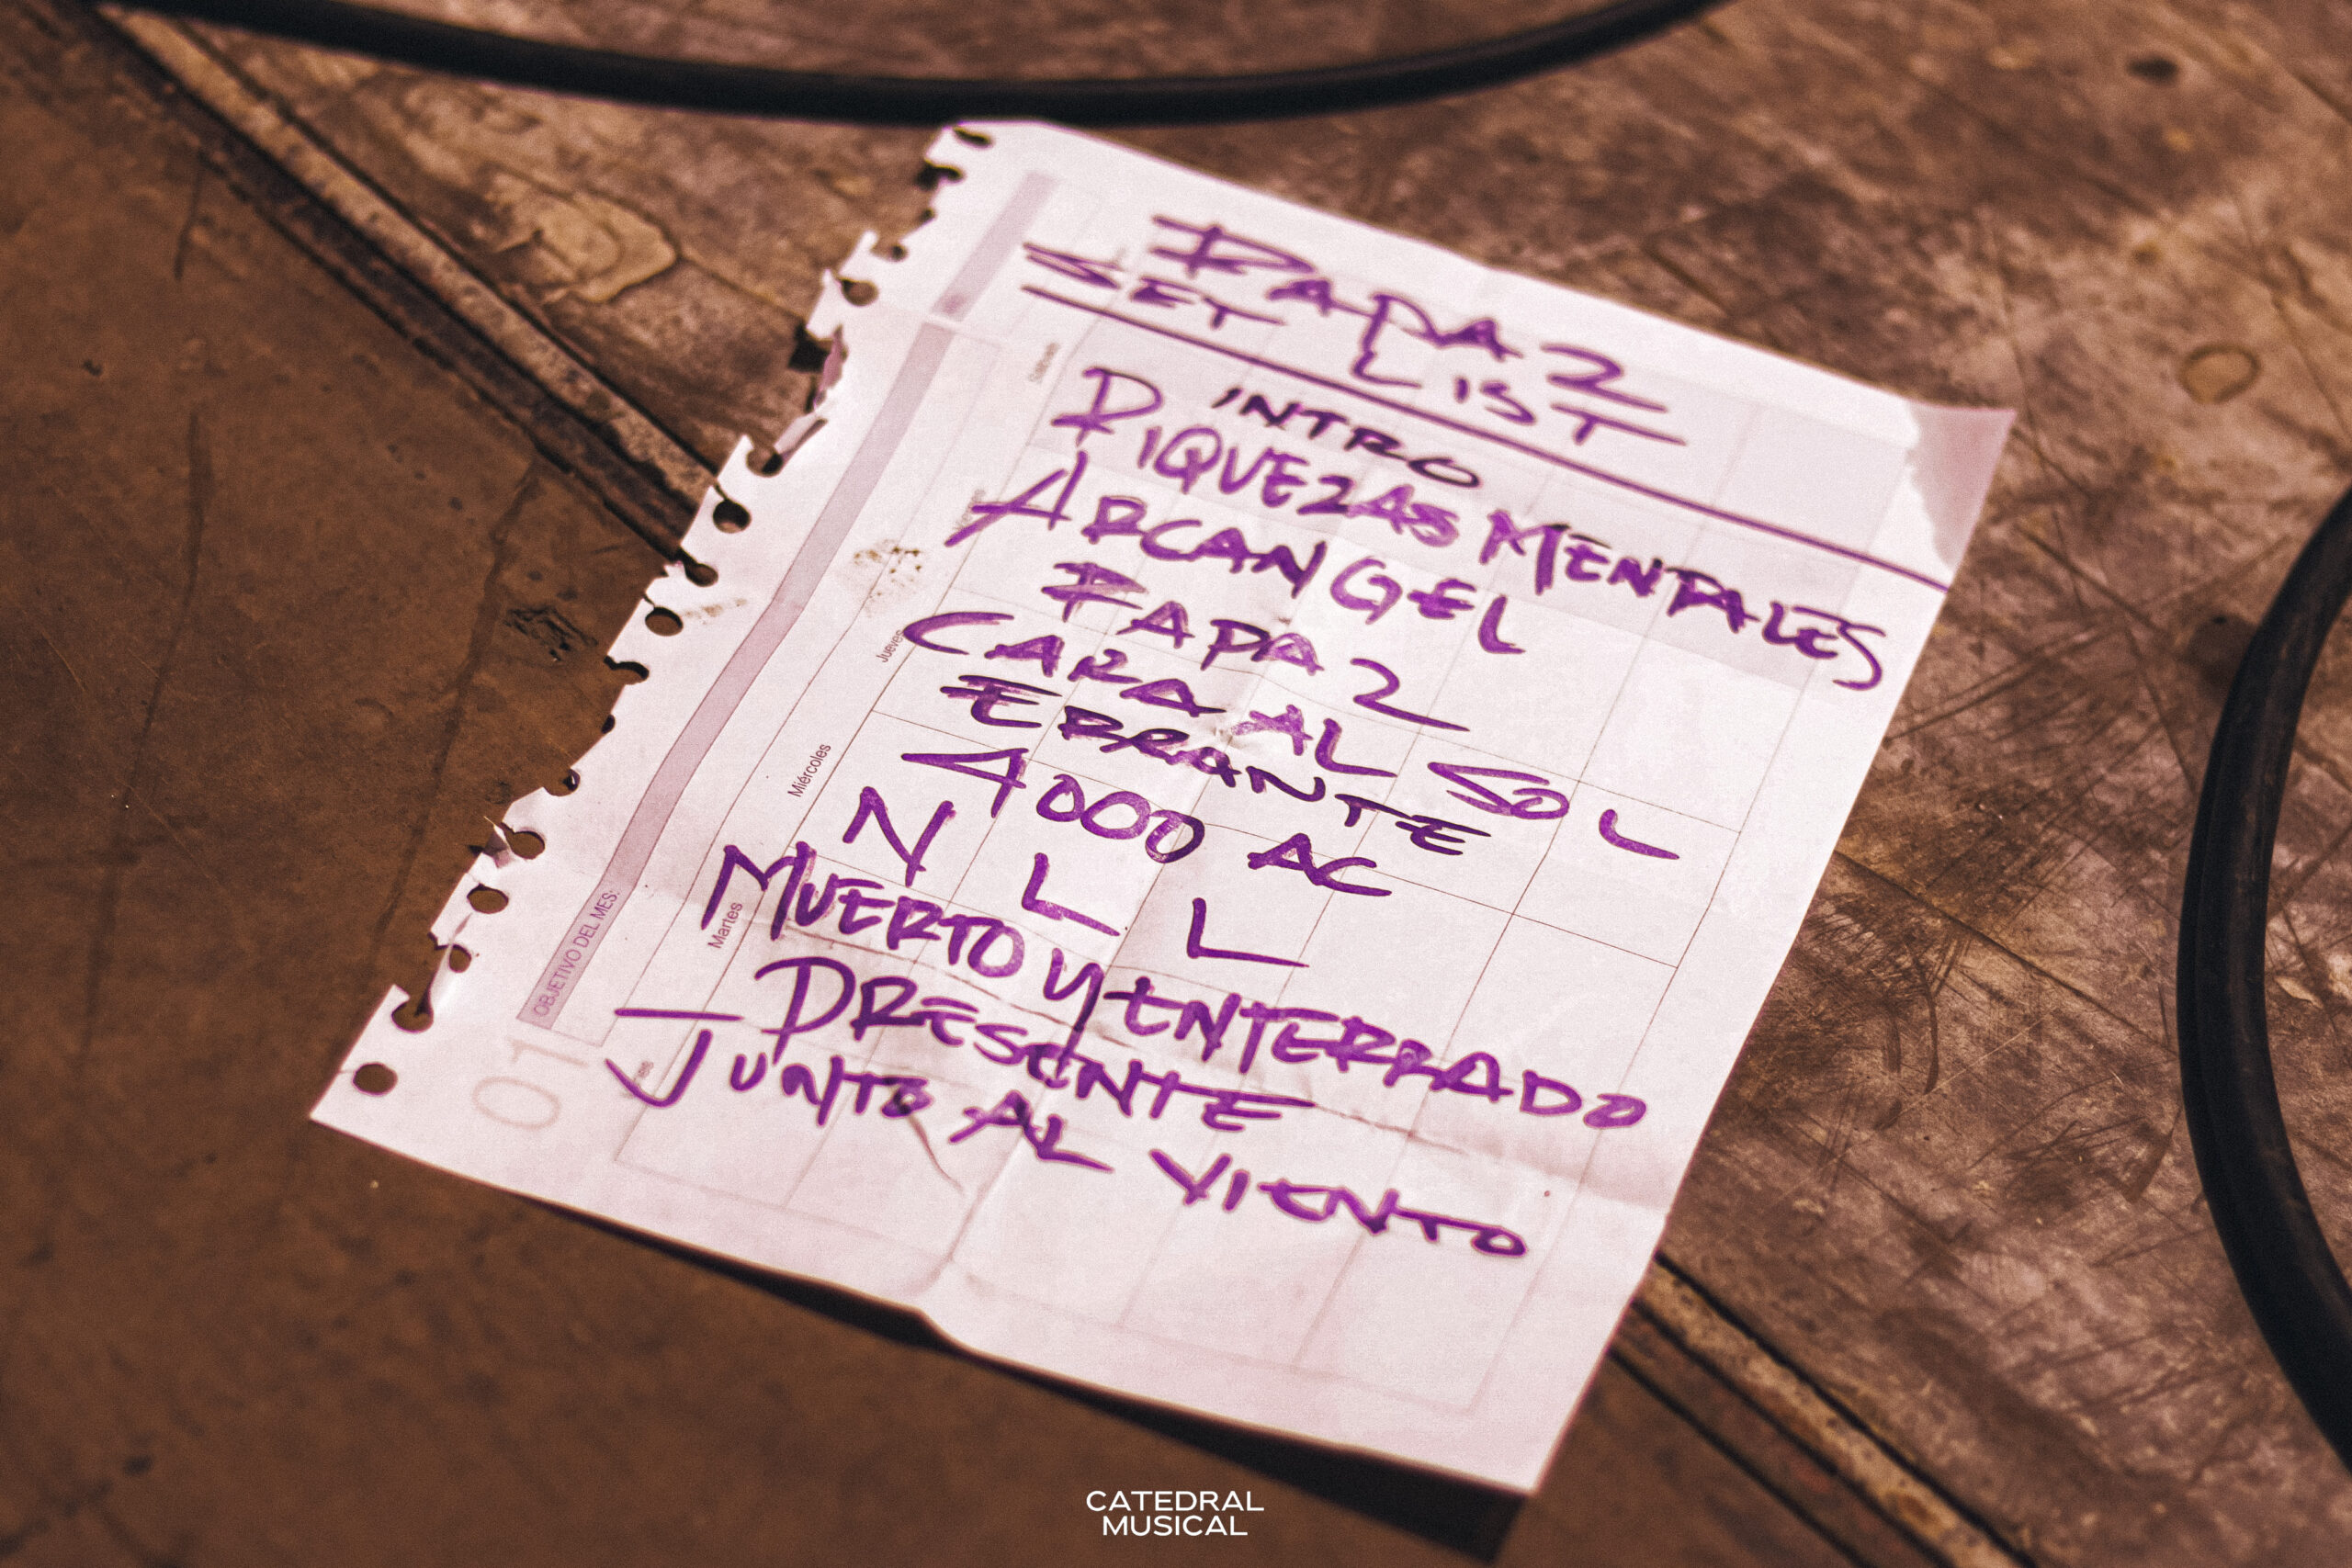 RAPAZ
SET LIST
INTRO
RIQUEZAS MENTALES
ARCANGEL
RAPAZ
CARA AL SOL
ERRANTE
4000 AC
N L L
MUERTO Y ENTERRADO
PRESENTE
JUNTO AL VIENTO
Jueves
Miércoles
Martes
OBJETIVO DEL MES:
01
CATEDRAL
MUSICAL